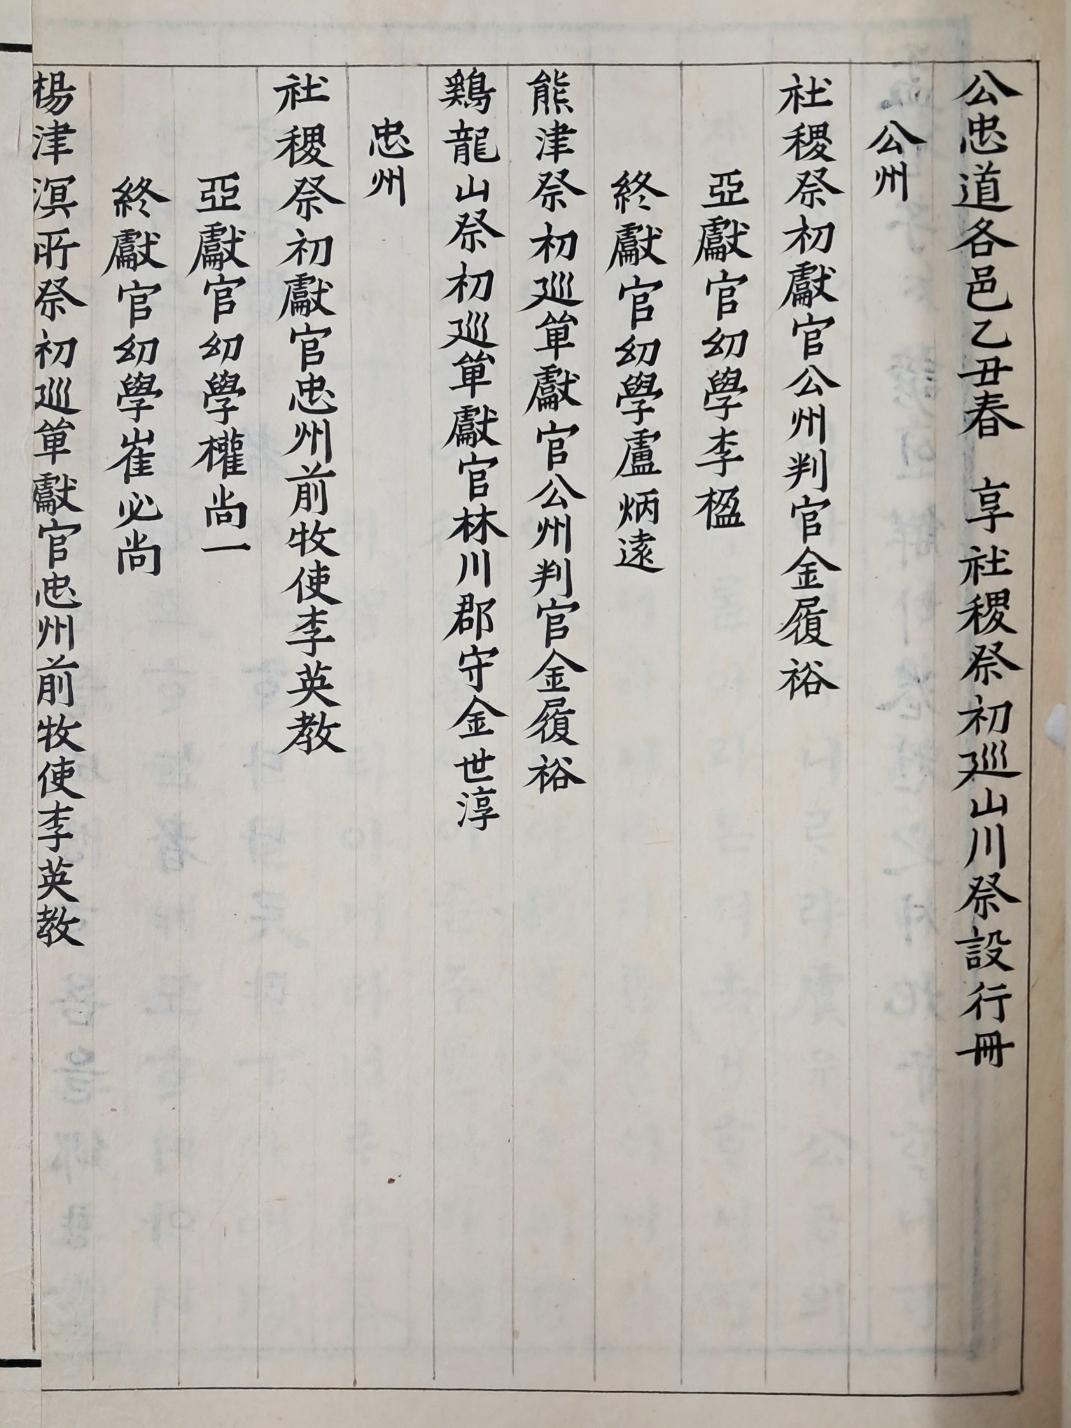 公忠道各邑乙丑春　享社稷祭初巡山川祭設行冊
公州
社稷祭初獻官公州判官金履裕
亞獻官幼學李楹
終獻官幼學盧炳遠
熊津祭初巡單獻官公州判官金履裕
鷄龍山祭初巡單獻官林川郡守金世淳
忠州
社稷祭初獻官忠州前牧使李英教
亞獻官幼學權尚一
終獻官幼學崔必尚
楊津溟所祭初巡單獻官忠州前牧使李英教